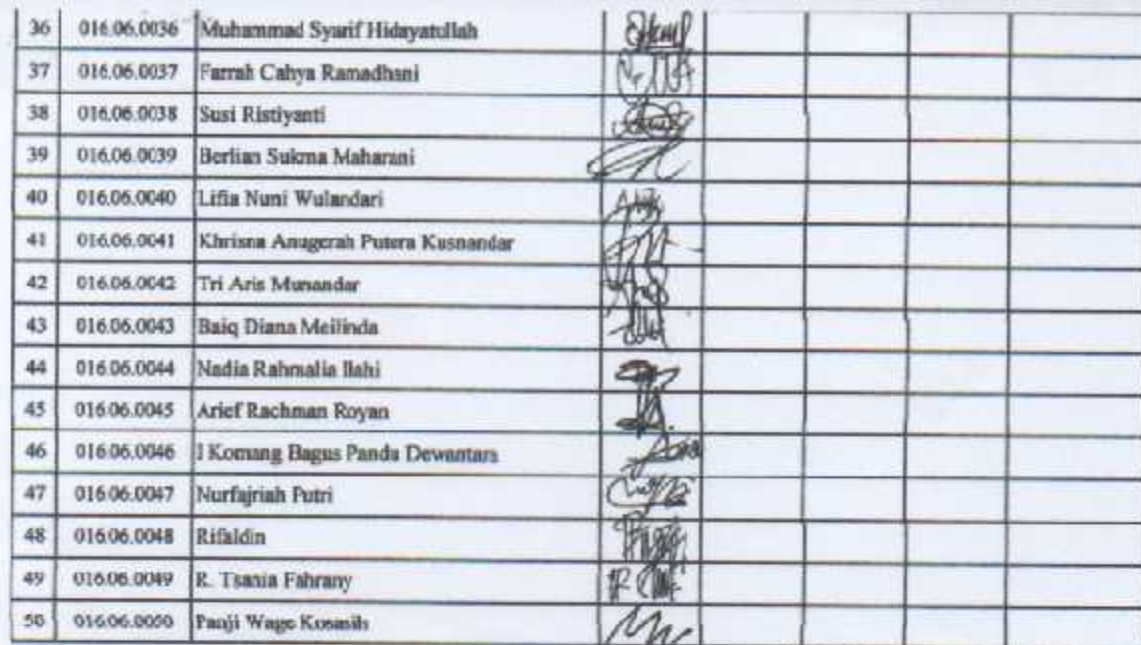 36 016.06.0036 Muhammad Syarif Hidayatullah
37 016.06.0037 Farrah Cahya Ramadhani
38 016.06.0038 Susi Ristiyanti
39 016.06.0039 Berlian Sukma Maharani
40 016.06.0040 Lifia Nuni Wulandari
41 016.06.0041 Khrisna Anugerah Putera Kusnandar
42 016.06.0042 Tri Aris Munandar
43 016.06.0043 Baiq Diana Meilinda
44 016.06.0044 Nadia Rahmalia Ilahi
45 016.06.0045 Arief Rachman Royan
46 016.06.0046 I Komang Bagus Pandu Dewantara
47 016.06.0047 Nurfajriah Putri
48 016.06.0048 Rifaldin
49 016.06.0049 R. Tsania Fahrany
50 016.06.0050 Panji Wage Kosasih